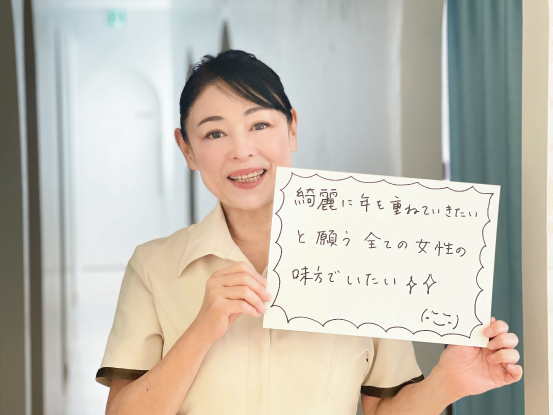 綺麗に年を重ねていきたい
と願う全ての女性の
味方でいたい✧✧